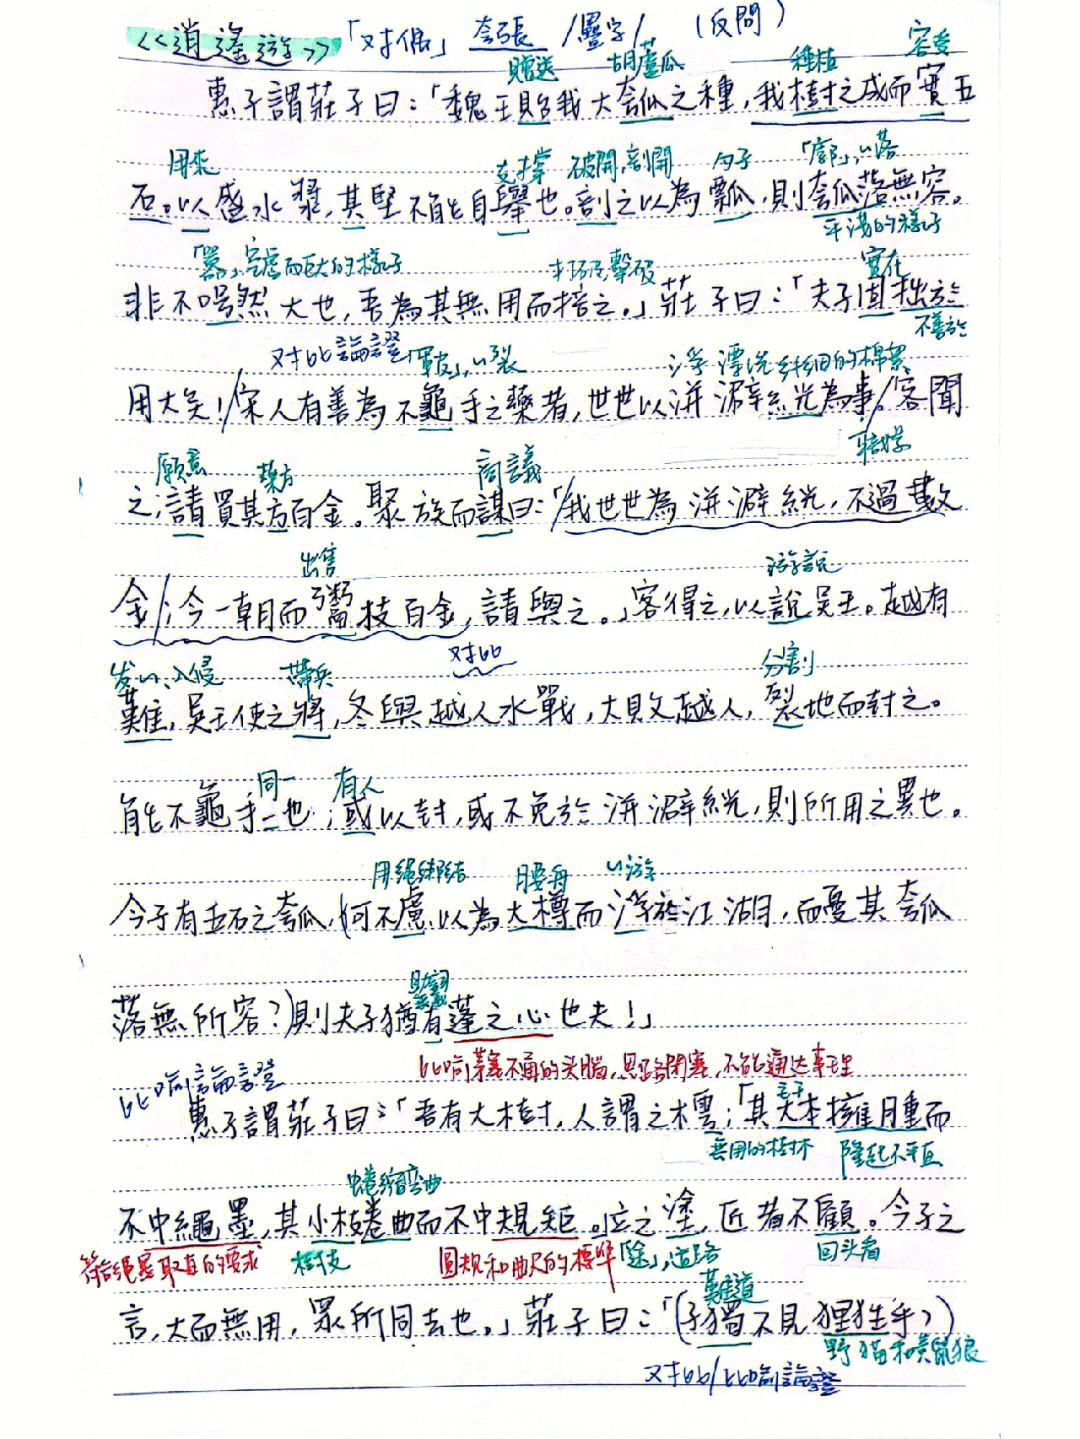 <<逍遙遊>>「对偶」 夸張 /疊字/ (反問)
贈送 胡蘆瓜 種植 容受
惠子謂莊子曰：「魏王貽我大瓠瓜之種，我樹之成而實五
用來 支撐 破開，剖開 勺子 「廓」，落
石。以盛水漿，其堅不能自舉也。剖之以為瓢，則瓠瓜落無容。
平淺的樣子
「囂」，空虛而巨大的樣子 打碎，擊破 實在
非不呺然大也，吾為其無用而掊之。」莊子曰：「夫子固拙於
不善於
对比論證 「皸」，裂 浮 漂洗 絲細的棉絮
用大矣！/宋人有善為不龜手之藥者，世世以洴澼絖為事。/客聞
願意 藥方 商議
之，請買其方百金。聚族而謀曰：「/我世世為洴澼絖，不過數
出售 游說
金/；今一朝而鬻技百金，請與之。」客得之，以說吳王。越有
入侵 帶兵 对比 分割
難，吳王使之將，冬與越人水戰，大敗越人，裂地而封之。
同一 有人
能不龜手一也；或以封，或不免於洴澼絖，則所用之異也。
用繩結 腰舟
今子有五石之瓠瓜，(何不慮以為大樽而浮於江湖，而憂其瓠瓜
落無所容？)則夫子猶有蓬之心也夫！」
比喻論證 比喻茅塞不通的头腦，思路閉塞，不能通达事理
惠子謂莊子曰：「吾有大樹，人謂之樗；「其大本擁腫而
無用的樹木 隆起不平直
蜷縮弯曲
不中繩墨，其小枝卷曲而不中規矩。立之塗，匠者不顧。今子之
符合繩墨取直的要求 樹枝 圓規和曲尺的標準 「除」，道路 回头看
難道
言，大而無用，眾所同去也。」莊子曰：「(子獨不見狸狌乎？)
野猫和黄鼠狼
对比/比喻論證